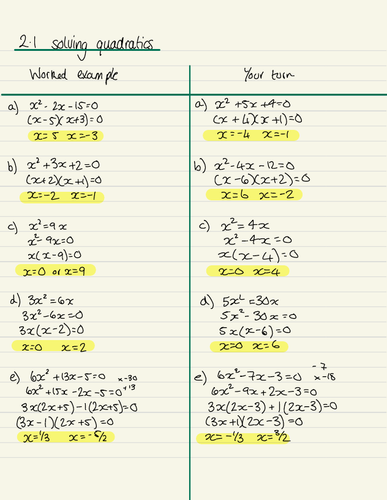 2.1 solving quadratics
Worked example
a) x² - 2x - 15 = 0
(x-5)(x+3) = 0
x = 5 x = -3
b) x² + 3x + 2 = 0
(x+2)(x+1) = 0
x = -2 x = -1
c) x² = 9x
x² - 9x = 0
x(x-9) = 0
x = 0 or x = 9
d) 3x² = 6x
3x² - 6x = 0
3x(x-2) = 0
x = 0 x = 2
e) 6x² + 13x - 5 = 0 x-30
6x² + 15x - 2x - 5 = 0 +13
3x(2x+5) - 1(2x+5) = 0
(3x-1)(2x+5) = 0
x = 1/3 x = -5/2
Your turn
a) x² + 5x + 4 = 0
(x+4)(x+1) = 0
x = -4 x = -1
b) x² - 4x - 12 = 0
(x-6)(x+2) = 0
x = 6 x = -2
c) x² = 4x
x² - 4x = 0
x(x-4) = 0
x = 0 x = 4
d) 5x² = 30x
5x² - 30x = 0
5x(x-6) = 0
x = 0 x = 6
-7
e) 6x² - 7x - 3 = 0 x-18
6x² - 9x + 2x - 3 = 0
3x(2x-3) + 1(2x-3) = 0
(3x+1)(2x-3) = 0
x = -1/3 x = 3/2